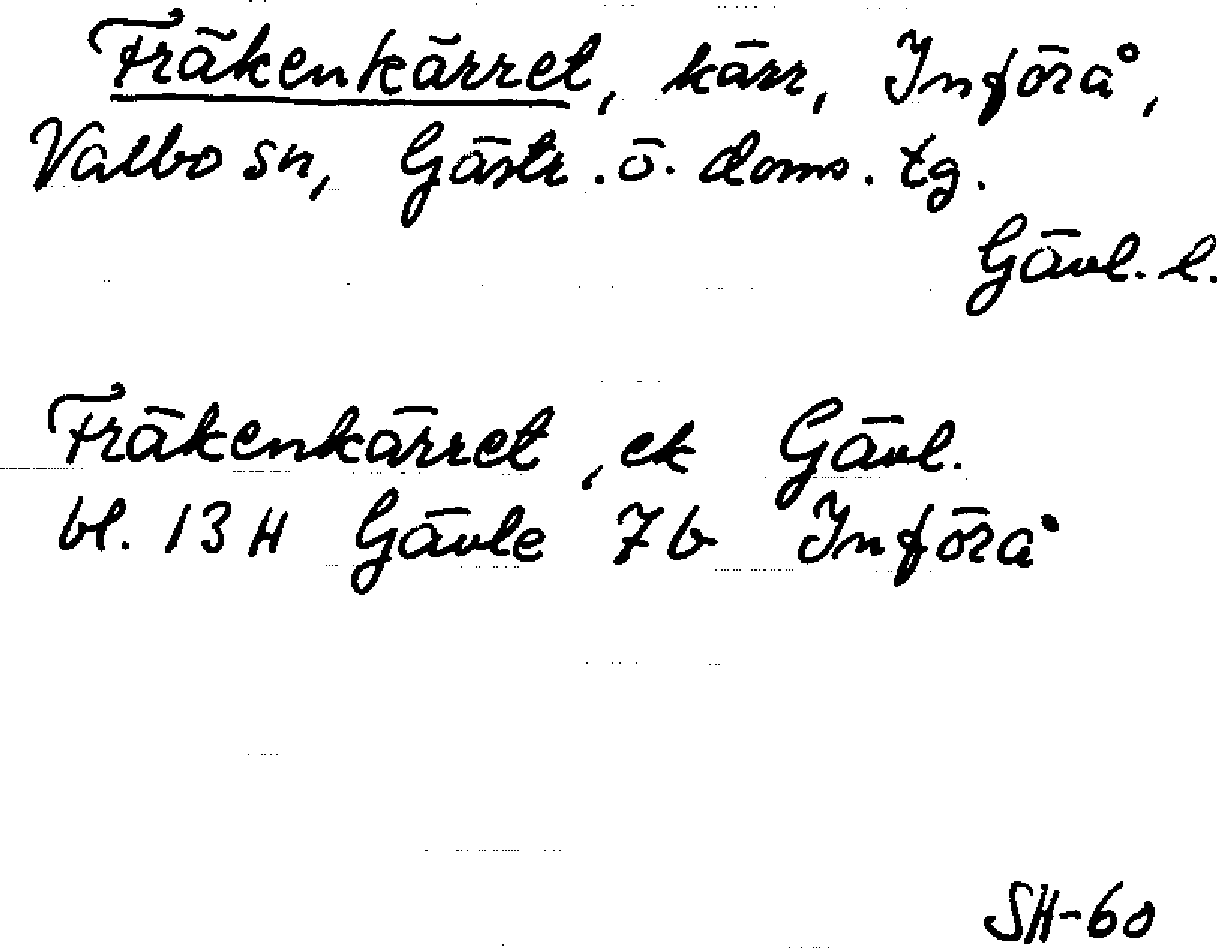 Fräkenkärret, kärr, Införå,
Valbo sn, Gästr. ö. doms. tg.
Gävl. l.
Fräkenkärret, ek Gävl.
bl. 13 H Gävle 7b Införå
SH-60